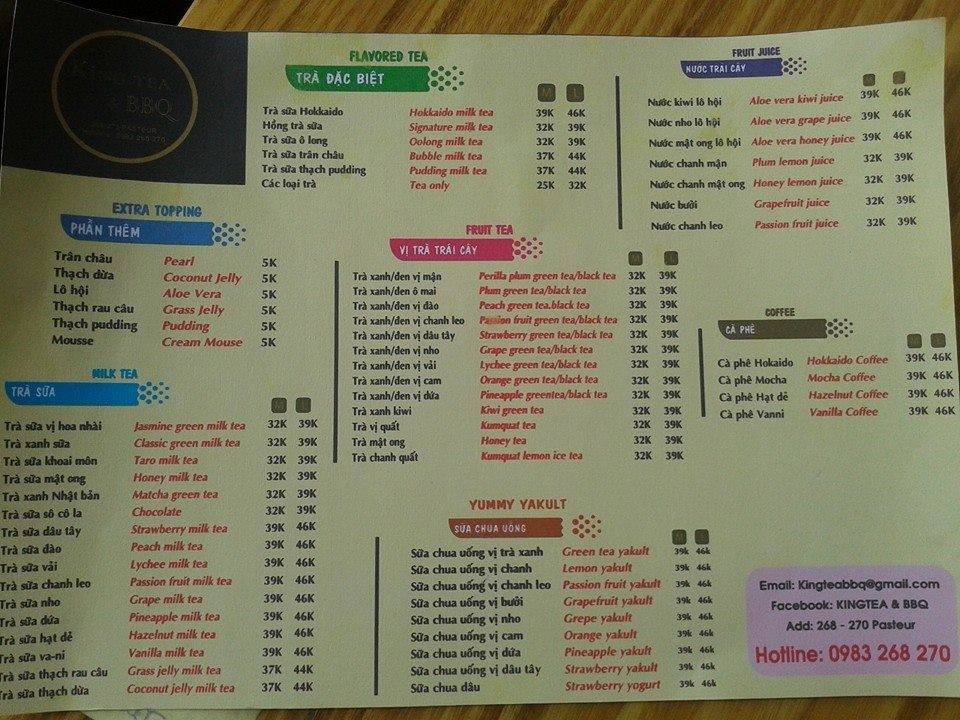 TEA
& BBQ
PASTEUR
0983 268 270
FLAVORED TEA
TRÀ ĐẶC BIỆT
M L
Trà sữa Hokkaido Hokkaido milk tea 39K 46K
Hồng trà sữa Signature milk tea 32K 39K
Trà sữa ô long Oolong milk tea 32K 39K
Trà sữa trân châu Bubble milk tea 37K 44K
Trà sữa thạch pudding Pudding milk tea 37K 44K
Các loại trà Tea only 25K 32K
FRUIT JUICE
NƯỚC TRÁI CÂY
Nước kiwi lô hội Aloe vera kiwi juice 39K 46K
Nước nho lô hội Aloe vera grape juice 39K 46K
Nước mật ong lô hội Aloe vera honey juice 39K 46K
Nước chanh mận Plum lemon juice 32K 39K
Nước chanh mật ong Honey lemon juice 32K 39K
Nước bưởi Grapefruit juice 32K 39K
Nước chanh leo Passion fruit juice 32K 39K
EXTRA TOPPING
PHẦN THÊM
Trân châu Pearl 5K
Thạch dừa Coconut Jelly 5K
Lô hội Aloe Vera 5K
Thạch rau câu Grass Jelly 5K
Thạch pudding Pudding 5K
Mousse Cream Mouse 5K
FRUIT TEA
VỊ TRÀ TRÁI CÂY
M L
Trà xanh/đen vị mận Perilla plum green tea/black tea 32K 39K
Trà xanh/đen ô mai Plum green tea/black tea 32K 39K
Trà xanh/đen vị đào Peach green tea.black tea 32K 39K
Trà xanh/đen vị chanh leo Passion fruit green tea/black tea 32K 39K
Trà xanh/đen vị dâu tây Strawberry green tea/black tea 32K 39K
Trà xanh/đen vị nho Grape green tea/black tea 32K 39K
Trà xanh/đen vị vải Lychee green tea/black tea 32K 39K
Trà xanh/đen vị cam Orange green tea/black tea 32K 39K
Trà xanh/đen vị dứa Pineapple greentea/black tea 32K 39K
Trà xanh kiwi Kiwi green tea 32K 39K
Trà vị quất Kumquat tea 32K 39K
Trà mật ong Honey tea 32K 39K
Trà chanh quất Kumquat lemon ice tea 32K 39K
COFFEE
CÀ PHÊ
Cà phê Hokaido Hokkaido Coffee 39K 46K
Cà phê Mocha Mocha Coffee 39K 46K
Cà phê Hạt dẻ Hazelnut Coffee 39K 46K
Cà phê Vanni Vanilla Coffee 39K 46K
MILK TEA
TRÀ SỮA
M L
Trà sữa vị hoa nhài Jasmine green milk tea 32K 39K
Trà xanh sữa Classic green milk tea 32K 39K
Trà sữa khoai môn Taro milk tea 32K 39K
Trà sữa mật ong Honey milk tea 32K 39K
Trà xanh Nhật bản Matcha green tea 32K 39K
Trà sữa sô cô la Chocolate 32K 39K
Trà sữa dâu tây Strawberry milk tea 39K 46K
Trà sữa đào Peach milk tea 39K 46K
Trà sữa vải Lychee milk tea 39K 46K
Trà sữa chanh leo Passion fruit milk tea 39K 46K
Trà sữa nho Grape milk tea 39K 46K
Trà sữa dứa Pineapple milk tea 39K 46K
Trà sữa hạt dẻ Hazelnut milk tea 39K 46K
Trà sữa va-ni Vanilla milk tea 39K 46K
Trà sữa thạch rau câu Grass jelly milk tea 37K 44K
Trà sữa thạch dừa Coconut jelly milk tea 37K 44K
YUMMY YAKULT
SỮA CHUA UỐNG
M L
Sữa chua uống vị trà xanh Green tea yakult 39k 46k
Sữa chua uống vị chanh Lemon yakult 39k 46k
Sữa chua uống vị chanh leo Passion fruit yakult 39k 46k
Sữa chua uống vị bưởi Grapefruit yakult 39k 46k
Sữa chua uống vị nho Grepe yakult 39k 46k
Sữa chua uống vị cam Orange yakult 39k 46k
Sữa chua uống vị dứa Pineapple yakult 39k 46k
Sữa chua uống vị dâu tây Strawberry yakult 39k 46k
Sữa chua dâu Strawberry yogurt 39k 46k
Email: Kingteabbq@gmail.com
Facebook: KINGTEA & BBQ
Add: 268 - 270 Pasteur
Hotline: 0983 268 270